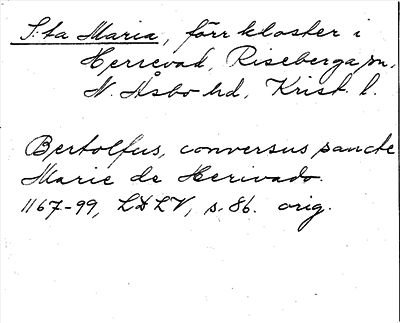 S:ta Maria, förr kloster i
Herrevad, Riseberga sn,
N. Åsbo hd, Krist. l.
Bertolfus, conversus sancte
Marie de Herivado.
1167-99, LDLV, s. 86. orig.